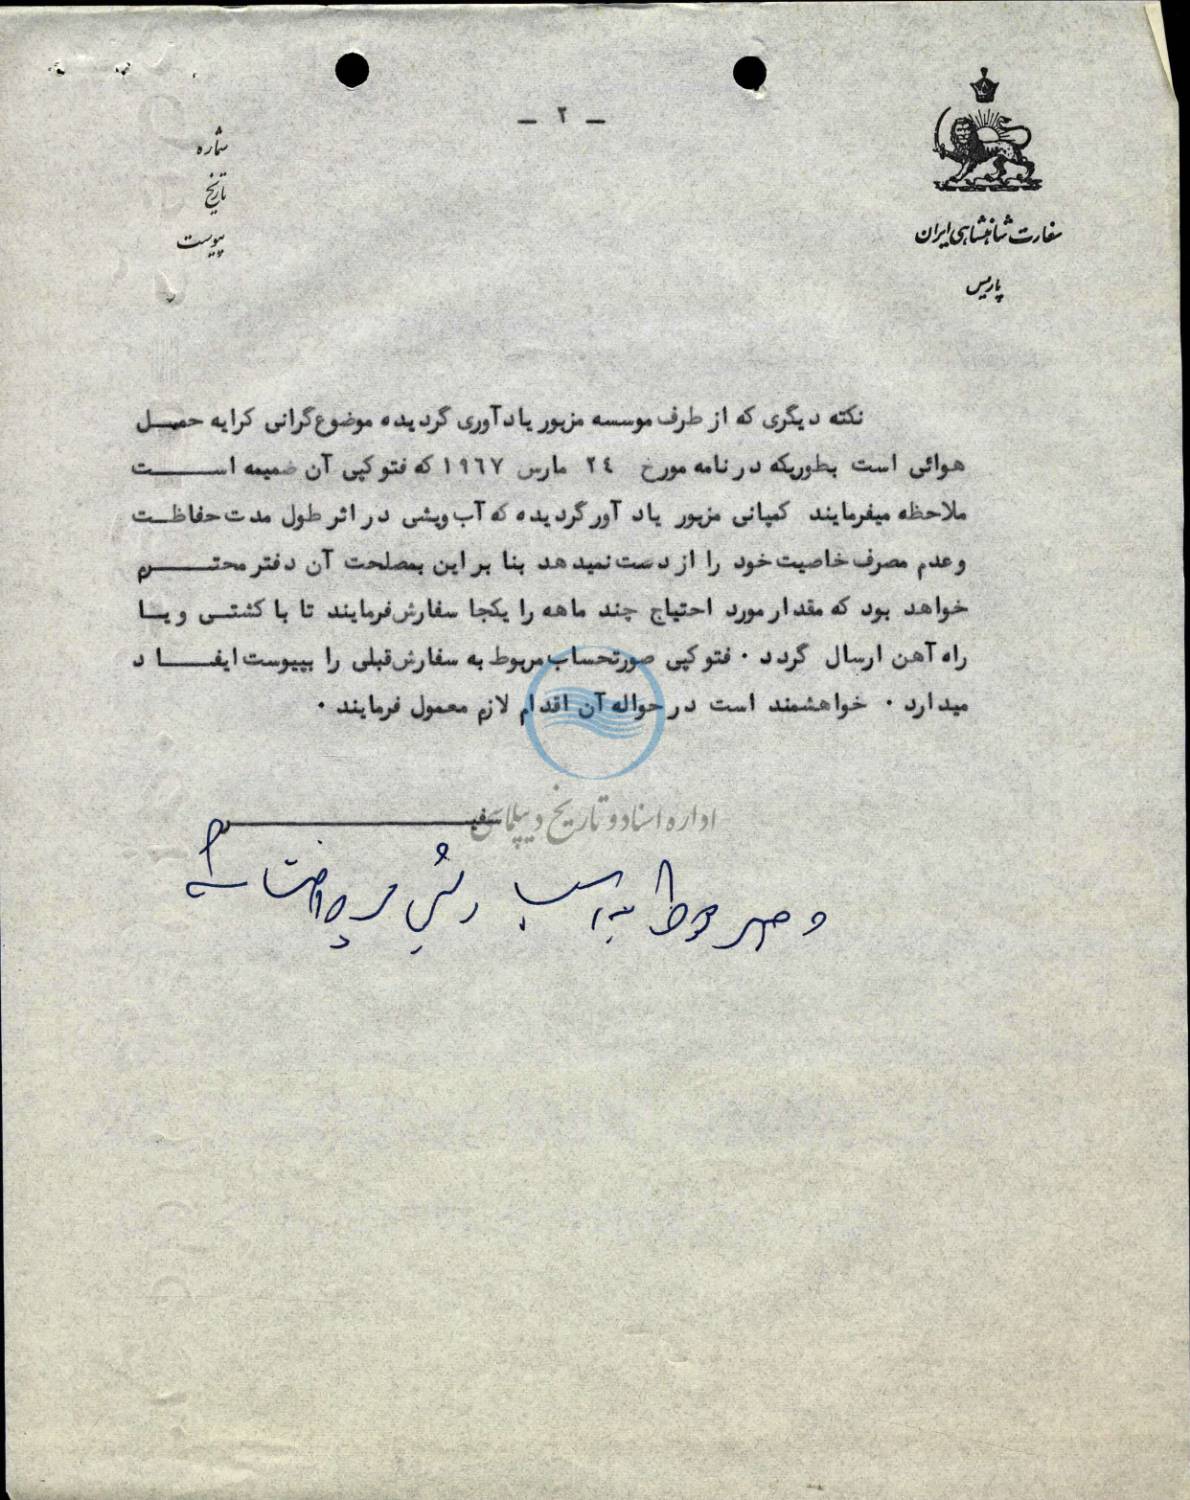 - ٢ -
سفارت شاهنشاهی ایران
پاریس
شماره
تاریخ
پیوست
نکته دیگری که از طرف موسسه مزبور یادآوری گردیده موضوع گرانی کرایه حمل
هوائی است بطوریکه در نامه مورخ ٢٤ مارس ١٩٦٧ که فتوکپی آن ضمیمه است
ملاحظه میفرمایند کمپانی مزبور یاد آور گردیده که آب ویشی در اثر طول مدت حفاظت
وعدم مصرف خاصیت خود را از دست نمیدهد بنا براین بمصلحت آن دفتر محترم
خواهد بود که مقدار مورد احتیاج چند ماهه را یکجا سفارش فرمایند تا با کشتی ویا
راه آهن ارسال گردد . فتوکپی صورتحساب مربوط به سفارش قبلی را بپیوست ایفاد
میدارد . خواهشمند است در حواله آن اقدام لازم معمول فرمایند .
سفیر
اداره اسناد و تاریخ دیپلماسی